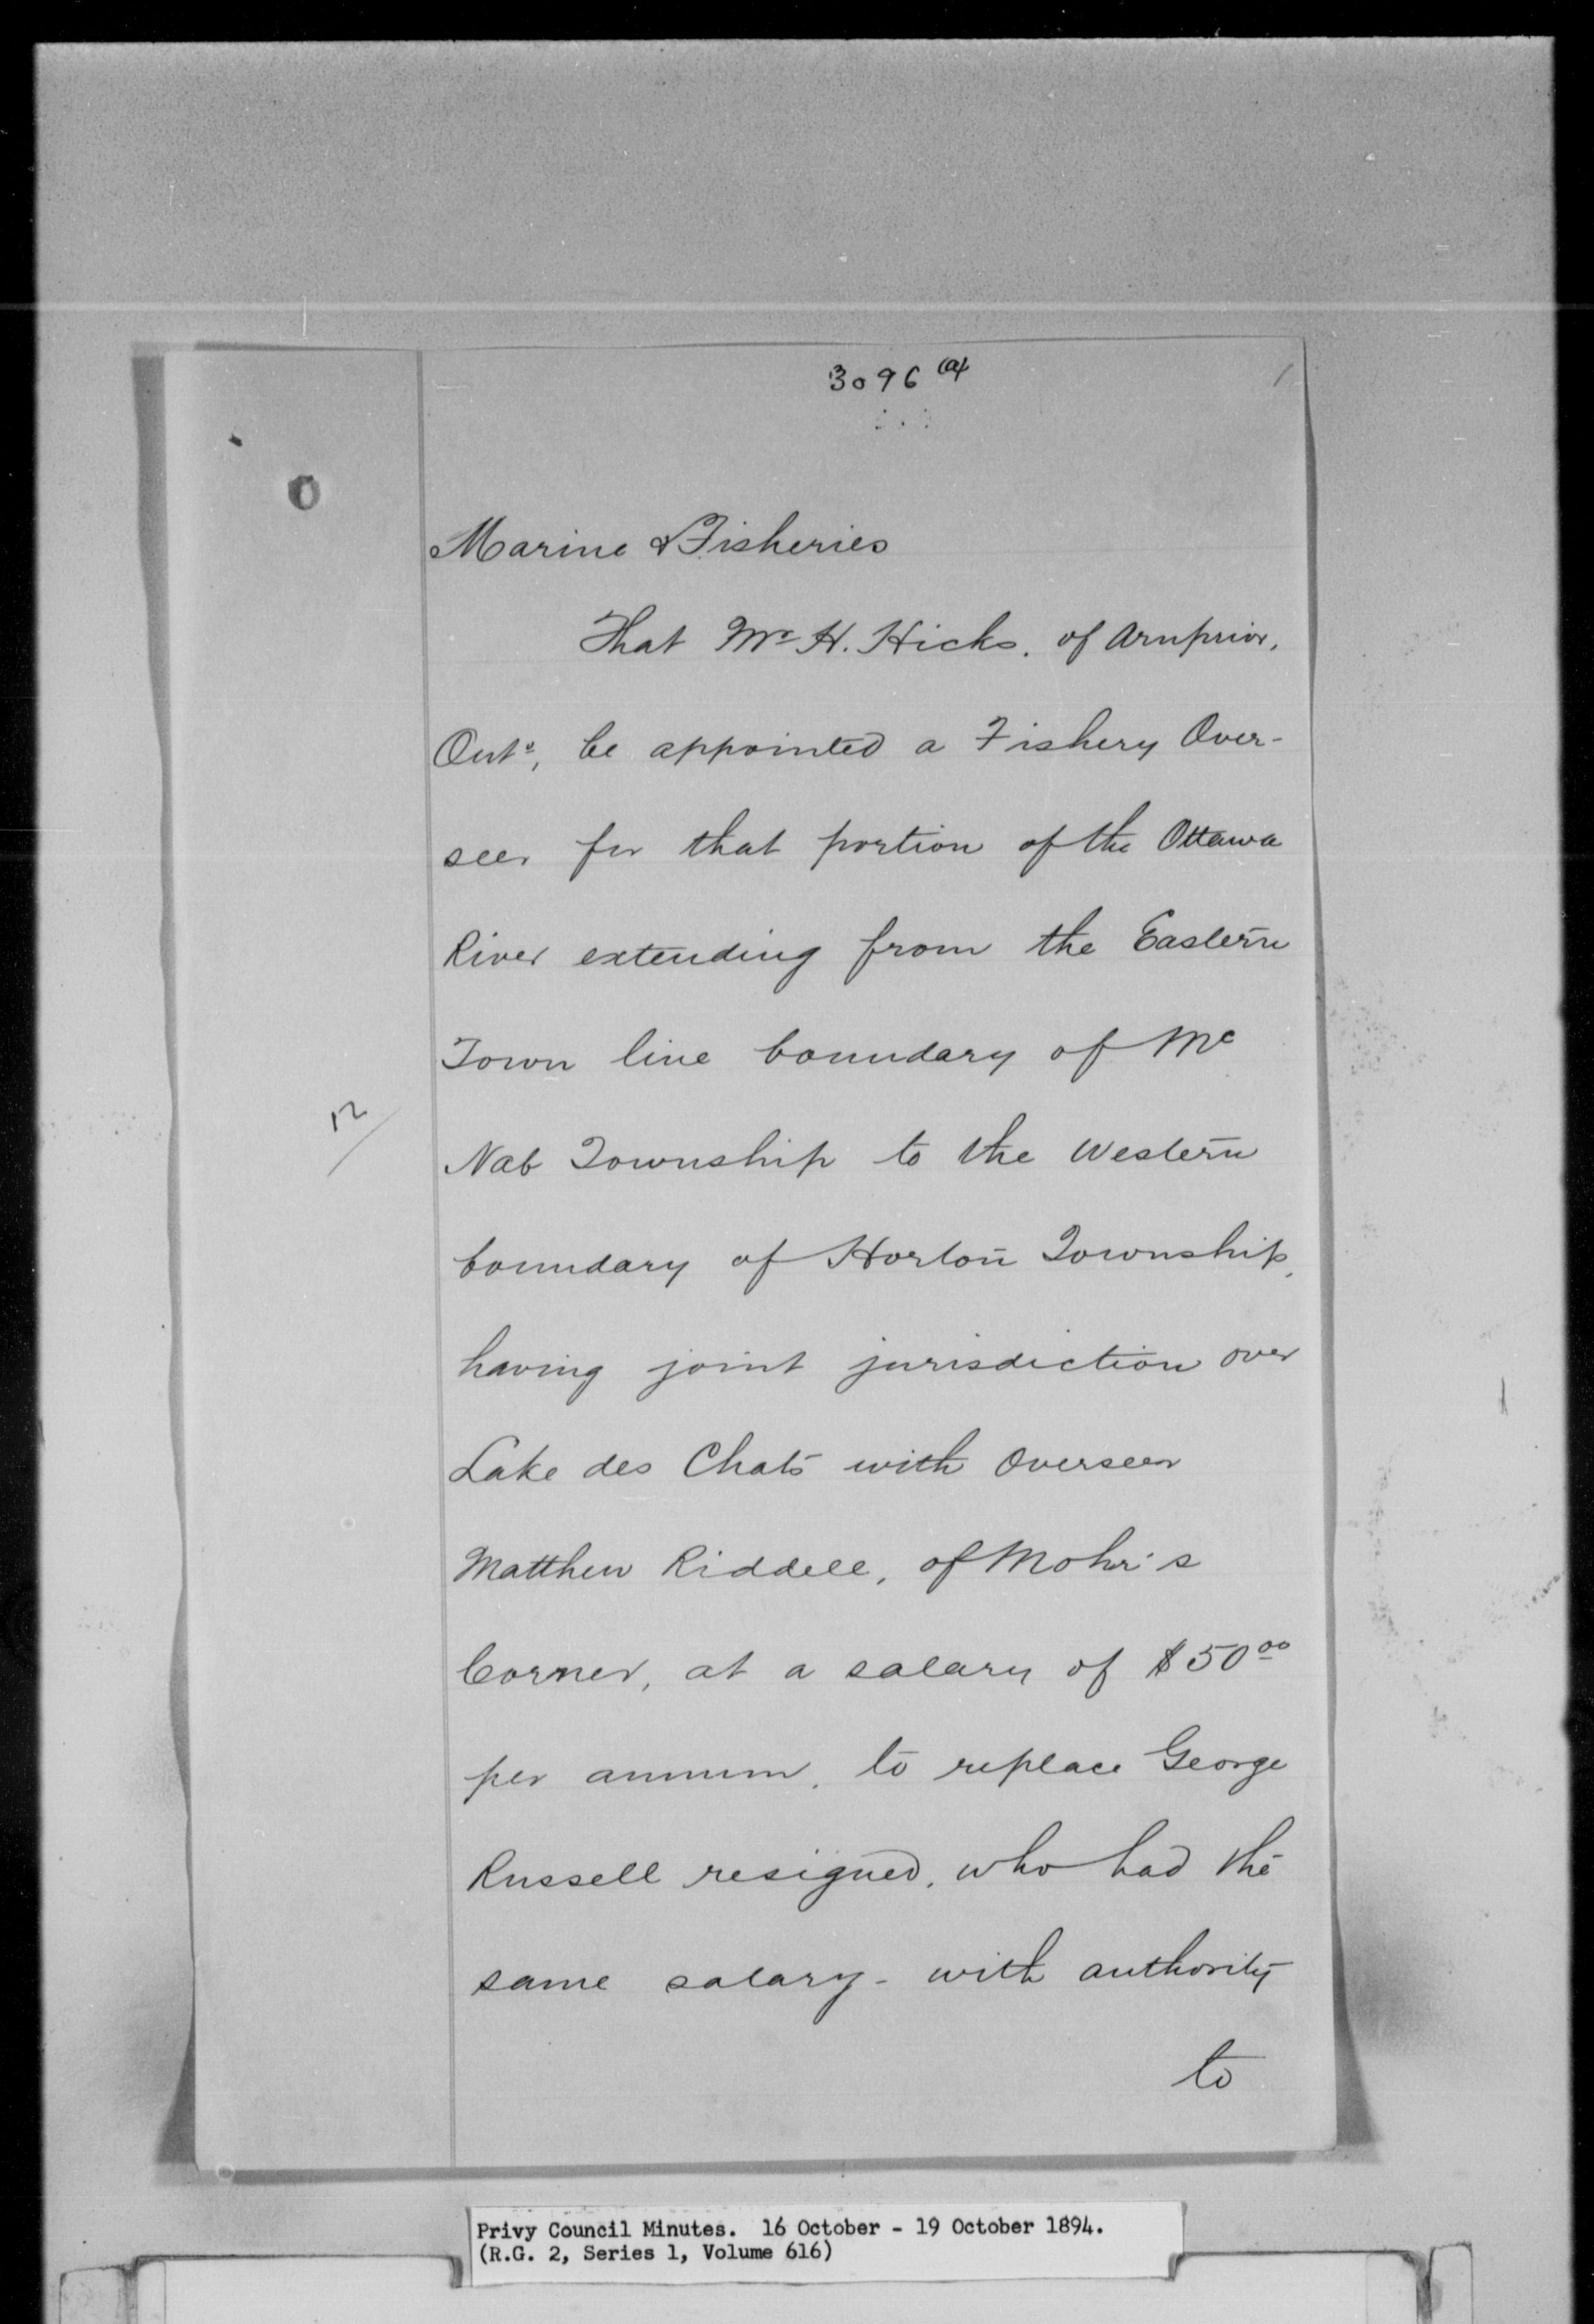 3096 (a)
Marine & Fisheries
That Mr H. Hicks, of Arnprior,
Onto, be appointed a Fishery Over-
seer for that portion of the Ottawa
River extending from the Eastern
Town line boundary of Mc
Nab Township to the Western
boundary of Horton Township,
having joint jurisdiction over
Lake des Chats with Overseer
Matthew Riddell, of Mohr's
Corner, at a salary of $50.00
per annum, to replace George
Russell resigned, who had the
same salary - with authority
to
12/
Privy Council Minutes. 16 October - 19 October 1894.
(R.G. 2, Series 1, Volume 616)